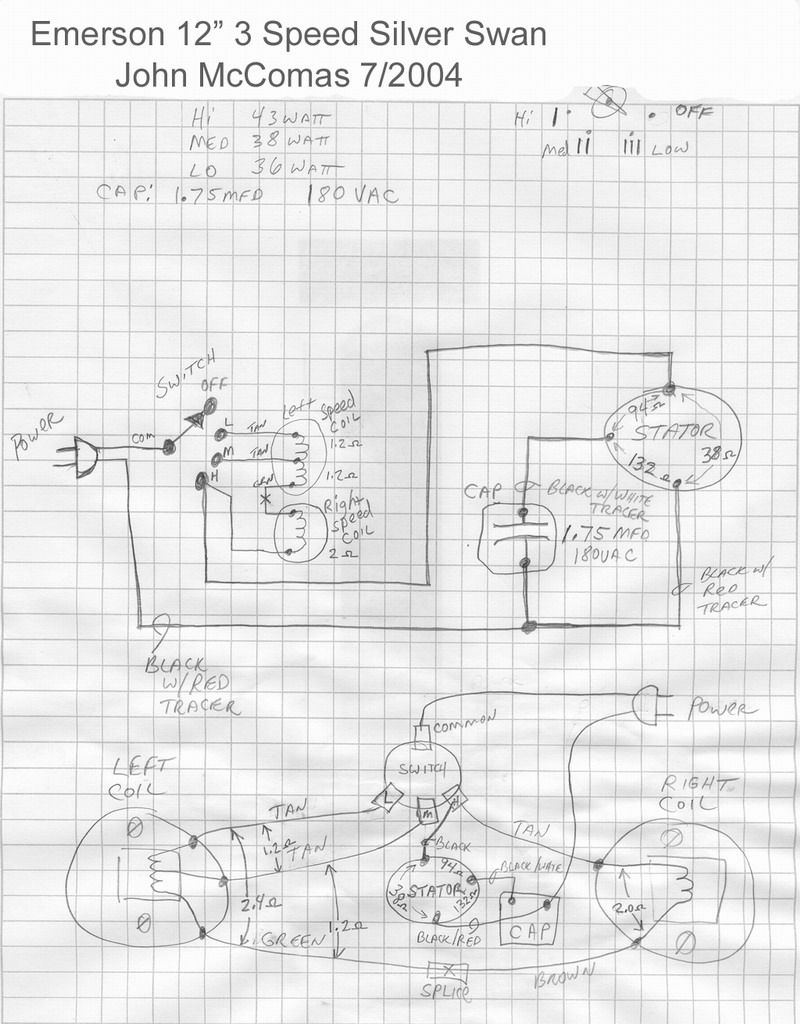 Emerson 12” 3 Speed Silver Swan
John McComas 7/2004
Hi 43 WATT
MED 38 WATT
LO 36 WATT
CAP: 1.75 MFD 180 VAC
Hi I OFF
Med II III LOW
SWITCH
OFF
POWER
COM
L
TAN
M
TAN
H
GRN
X
Left Speed COIL
1.2Ω
1.2Ω
Right Speed COIL
2Ω
94Ω
STATOR
132Ω
38Ω
CAP
BLACK W/WHITE TRACER
1.75 MFD
180VAC
BLACK W/ Red TRACER
BLACK W/RED TRACER
COMMON
POWER
SWITCH
L
M
H
LEFT COIL
RIGHT COIL
TAN
1.2Ω
TAN
TAN
BLACK
94Ω
BLACK/WHITE
STATOR
38Ω
132Ω
2.4Ω
1.2Ω
2.0Ω
BLACK/RED
CAP
GREEN
X
SPLICE
BROWN